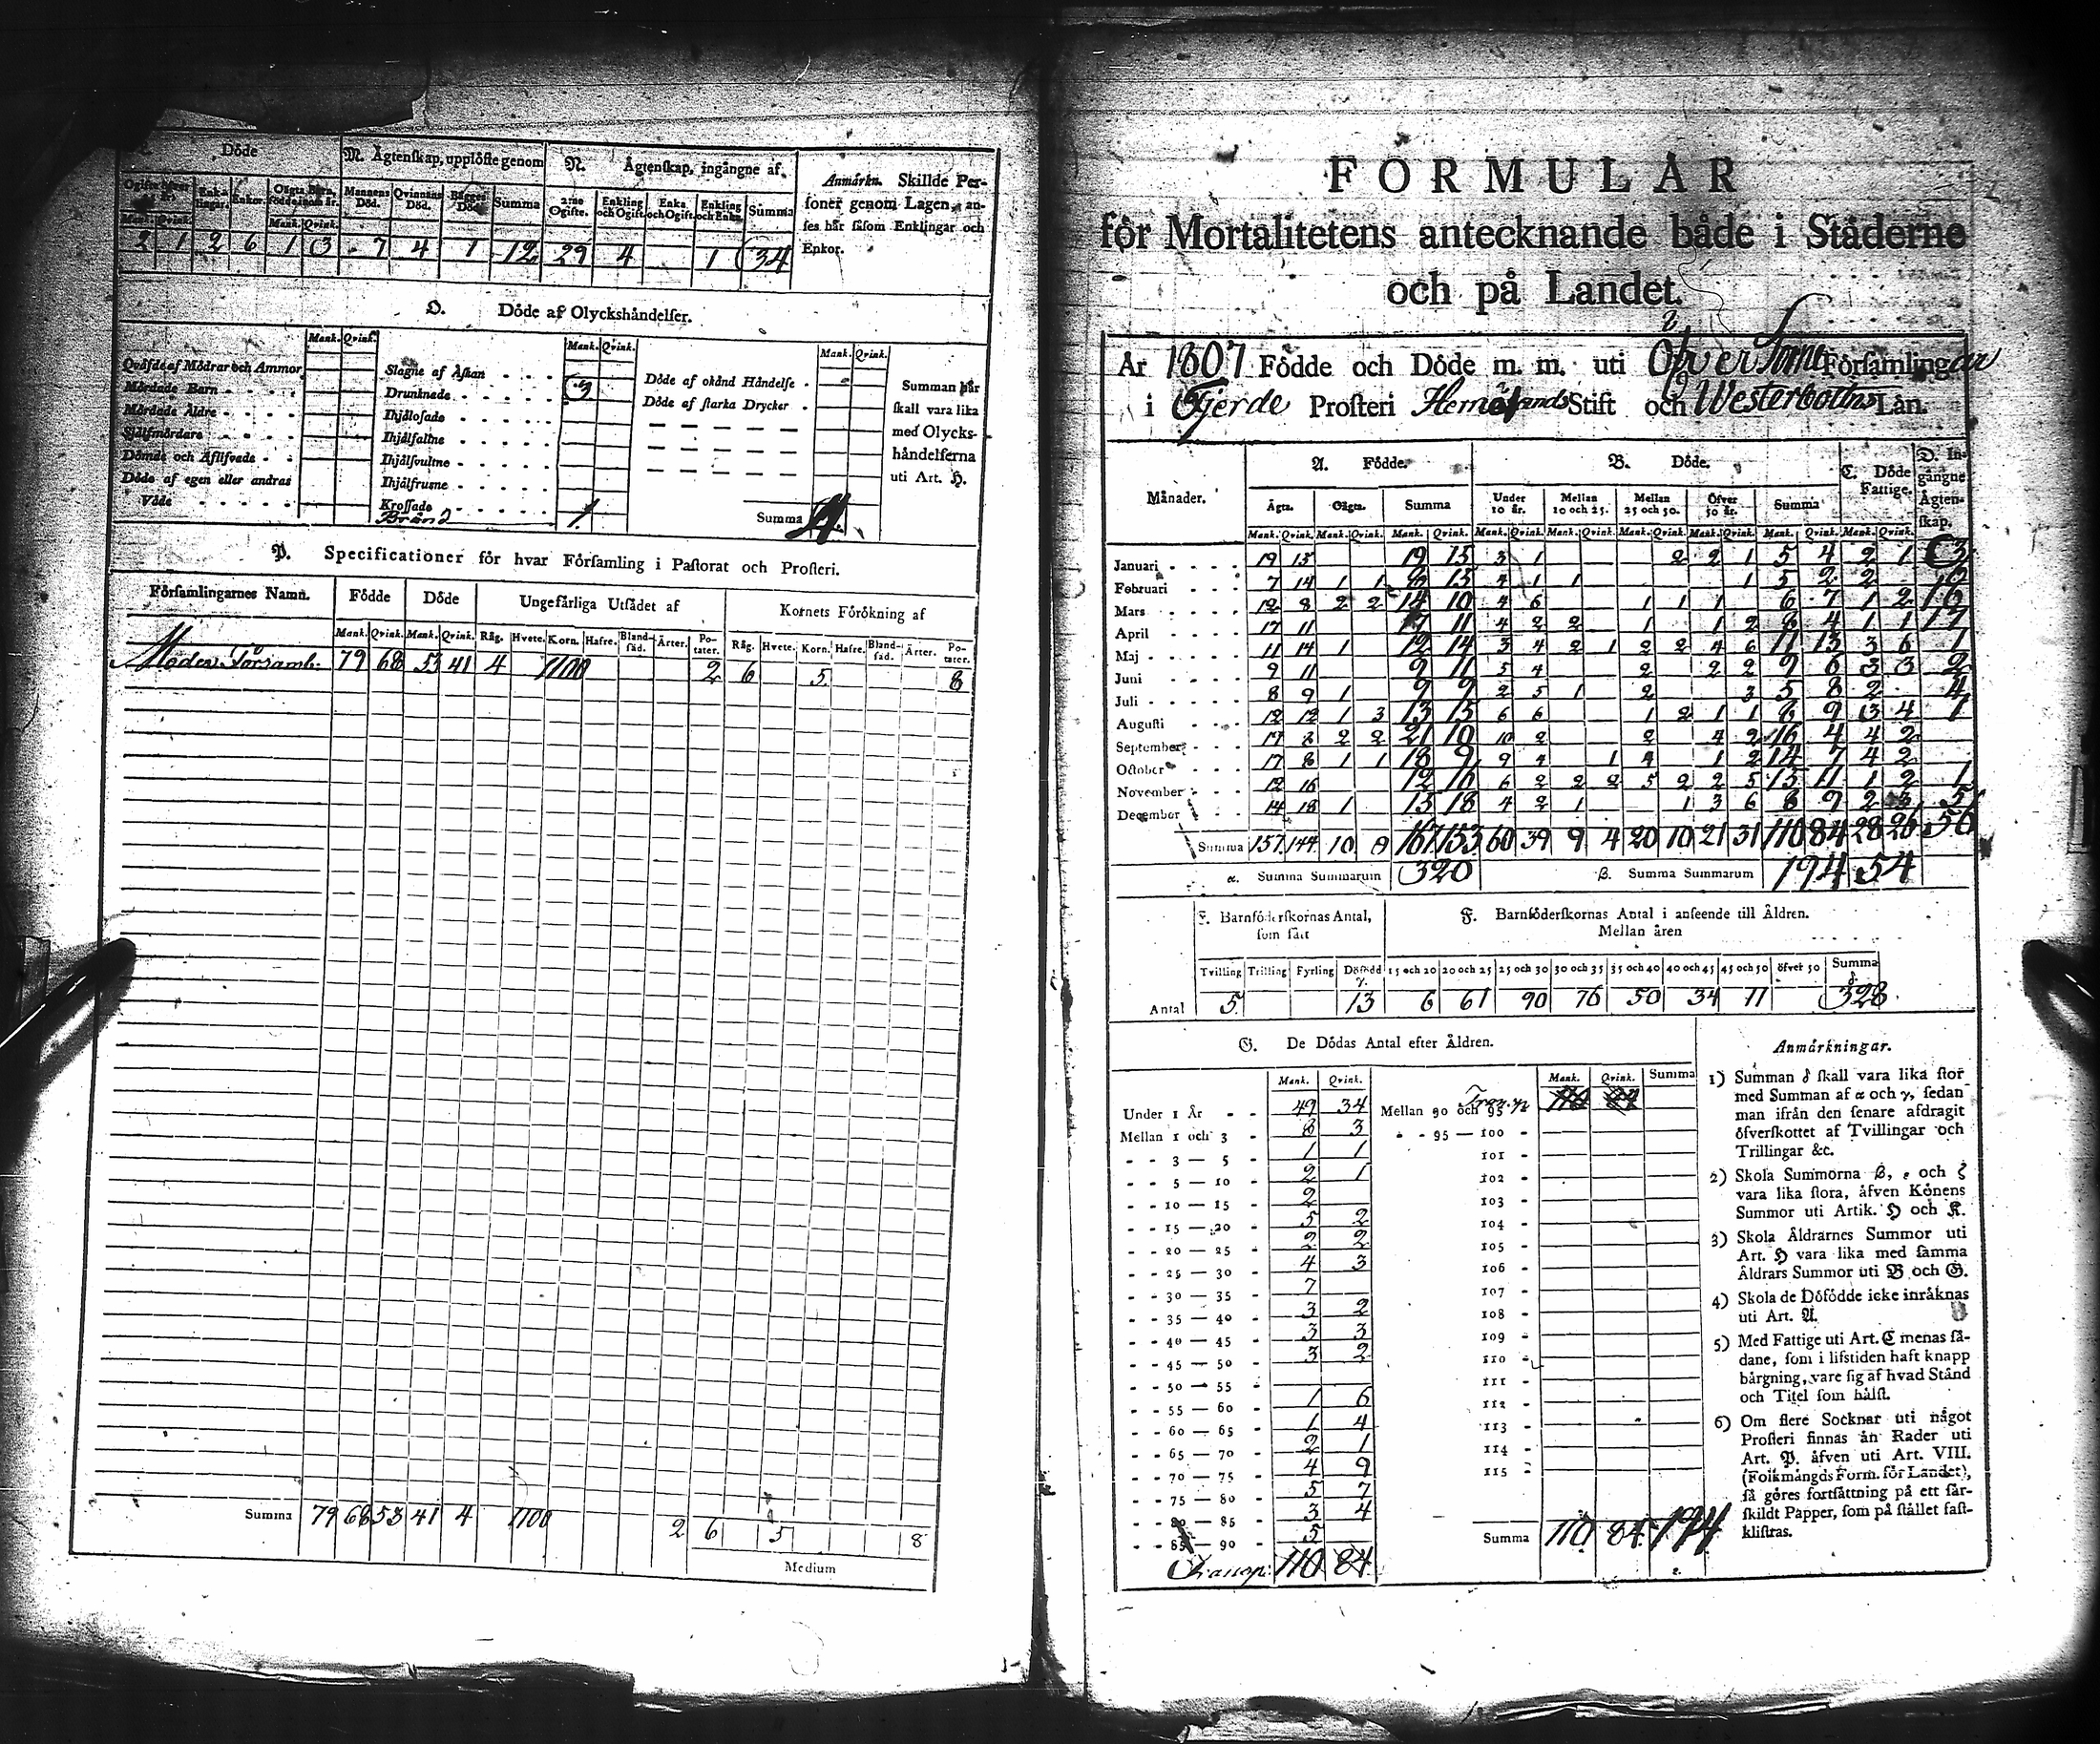 Döde
M. Ägtenskap, upplöste genom
N. Ägtenskap, ingångne af
Anmärkn. Skillde Per-
soner genom Lagen, an-
ses här såsom Enklingar och
Enkor.
Enk-
lingar. Enkor. Mannens Död. Qvinnans Död. Bägges Död. Summa 2:ne Ogifte. Enkling och Ogift. Enka och Ogift. Enkling och Enka. Summa
Mank. Qvink. Mank. Qvink.
2 1 2 6 1 3 7 4 1 12 29 4 1 34
O. Döde af Olyckshändelser.
Mank. Qvink. Mank. Qvink. Mank. Qvink.
Qväfde af Mödrar och Ammor
Mördade Barn
Mördade Äldre
Självmördare
Dömde och Aflifvade
Döde af egen eller andras
Våde
Slagne af Åskan
Drunknade 3
Ihjälosade
Ihjälfallne
Ihjälsvultne
Ihjälfrusne
Krossade
Bränd 1
Döde af okänd Händelse
Döde af starka Drycker
Summa 4
Summan här
skall vara lika
med Olycks-
händelserna
uti Art. H.
P. Specificationer för hvar Församling i Pastorat och Prosteri.
Församlingarnes Namn. Födde Döde Ungefärliga Utsädet af Kornets Förökning af
Mank. Qvink. Mank. Qvink. Råg. Hvete. Korn. Hafre. Bland-säd. Ärter. Po-tater. Råg. Hvete. Korn. Hafre. Bland-säd. Ärter. Po-tater.
Moder Församl: 79 68 53 41 4 1100 2 6 5 8
Summa 79 68 53 41 4 1100 2 6 5 8
Medium
FORMULAR
för Mortalitetens antecknande både i Städerne
och på Landet.
År 1807 Födde och Döde m. m. uti Församlingar
i Prosteri Stift och Westerbottns Län.
Månader. A. Födde. B. Döde. C. Döde Fattige. D. In-gångne Ägten-skap.
Ägta. Oägta. Summa Under 10 år. Mellan 10 och 25. Mellan 25 och 50. Öfver 50 år. Summa
Mank. Qvink. Mank. Qvink. Mank. Qvink. Mank. Qvink. Mank. Qvink. Mank. Qvink. Mank. Qvink. Mank. Qvink. Mank. Qvink.
Januari 19 15 19 15 3 1 2 2 1 5 4 2 1 3
Februari 7 14 1 1 8 15 4 1 1 1 5 2 2
Mars 12 8 2 2 14 10 4 6 1 1 1 6 7 1 2
April 17 11 17 11 4 2 2 1 1 2 8 4 1 1 17
Maj 11 14 1 12 14 3 4 2 1 2 2 4 6 11 13 3 6 1
Juni 9 11 9 11 5 4 2 2 2 9 6 3 3 2
Juli 8 9 1 9 9 2 5 1 2 3 5 8 2 4
Augusti 12 12 1 3 13 15 6 6 1 2 1 1 8 9 3 4 1
September 2 2 21 10 10 2 2 4 2 16 4 4 2
October 17 8 1 1 18 9 9 4 1 4 1 2 14 7 4 2
November 12 16 12 16 6 2 2 2 5 2 2 5 15 11 1 2 1
December 14 18 1 15 18 4 2 1 1 3 6 8 9 2 3 5
Summa 157 144 10 9 167 153 60 39 9 4 20 10 21 31 110 84 28 26 56
α. Summa Summarum 320 β. Summa Summarum 194 54
E. Barnföderskornas Antal,
som fått
F. Barnföderskornas Antal i anseende till Åldren.
Mellan åren
Tvilling Trilling Fyrling Döfödd γ. 15 och 20 20 och 25 25 och 30 30 och 35 35 och 40 40 och 45 45 och 50 öfver 50 Summa δ.
Antal 5 13 6 61 90 76 50 34 11 328
G. De Dödas Antal efter Åldren.
Mank. Qvink. Mank. Qvink. Summa
Under 1 År 49 34
Mellan 1 och 3 8 3
3 — 5 1 1
5 — 10 2 1
10 — 15 2
15 — 20 5 2
20 — 25 2 2
25 — 30 4 3
30 — 35 7
35 — 40 3 2
40 — 45 3 3
45 — 50 3 2
50 — 55
55 — 60 1 6
60 — 65 1 4
65 — 70 2 1
70 — 75 4 9
75 — 80 5 7
80 — 85 3 4
85 — 90 5
110 84
Mellan 90 och 95
95 — 100
101
102
103
104
105
106
107
108
109
110
111
112
113
114
115
Summa 110 84 194
Anmärkningar.
1) Summan δ skall vara lika stor
med Summan af α och γ, sedan
man ifrån den senare afdragit
öfverskottet af Tvillingar och
Trillingar &c.
2) Skola Summorna β, ε och ζ
vara lika stora, äfven Könens
Summor uti Artik. H och K.
3) Skola Åldrarnes Summor uti
Art. H vara lika med samma
Åldrars Summor uti B och G.
4) Skola de Döfödde icke inräknas
uti Art. A.
5) Med Fattige uti Art. C menas så-
dane, som i lifstiden haft knapp
bärgning, vare sig af hvad Stånd
och Titel som hälst.
6) Om flere Socknar uti något
Prosteri finnas än Rader uti
Art. P. äfven uti Art. VIII.
(Folkmängds Form. för Landet),
så göres fortsättning på ett sär-
skildt Papper, som på stället fast-
klistras.